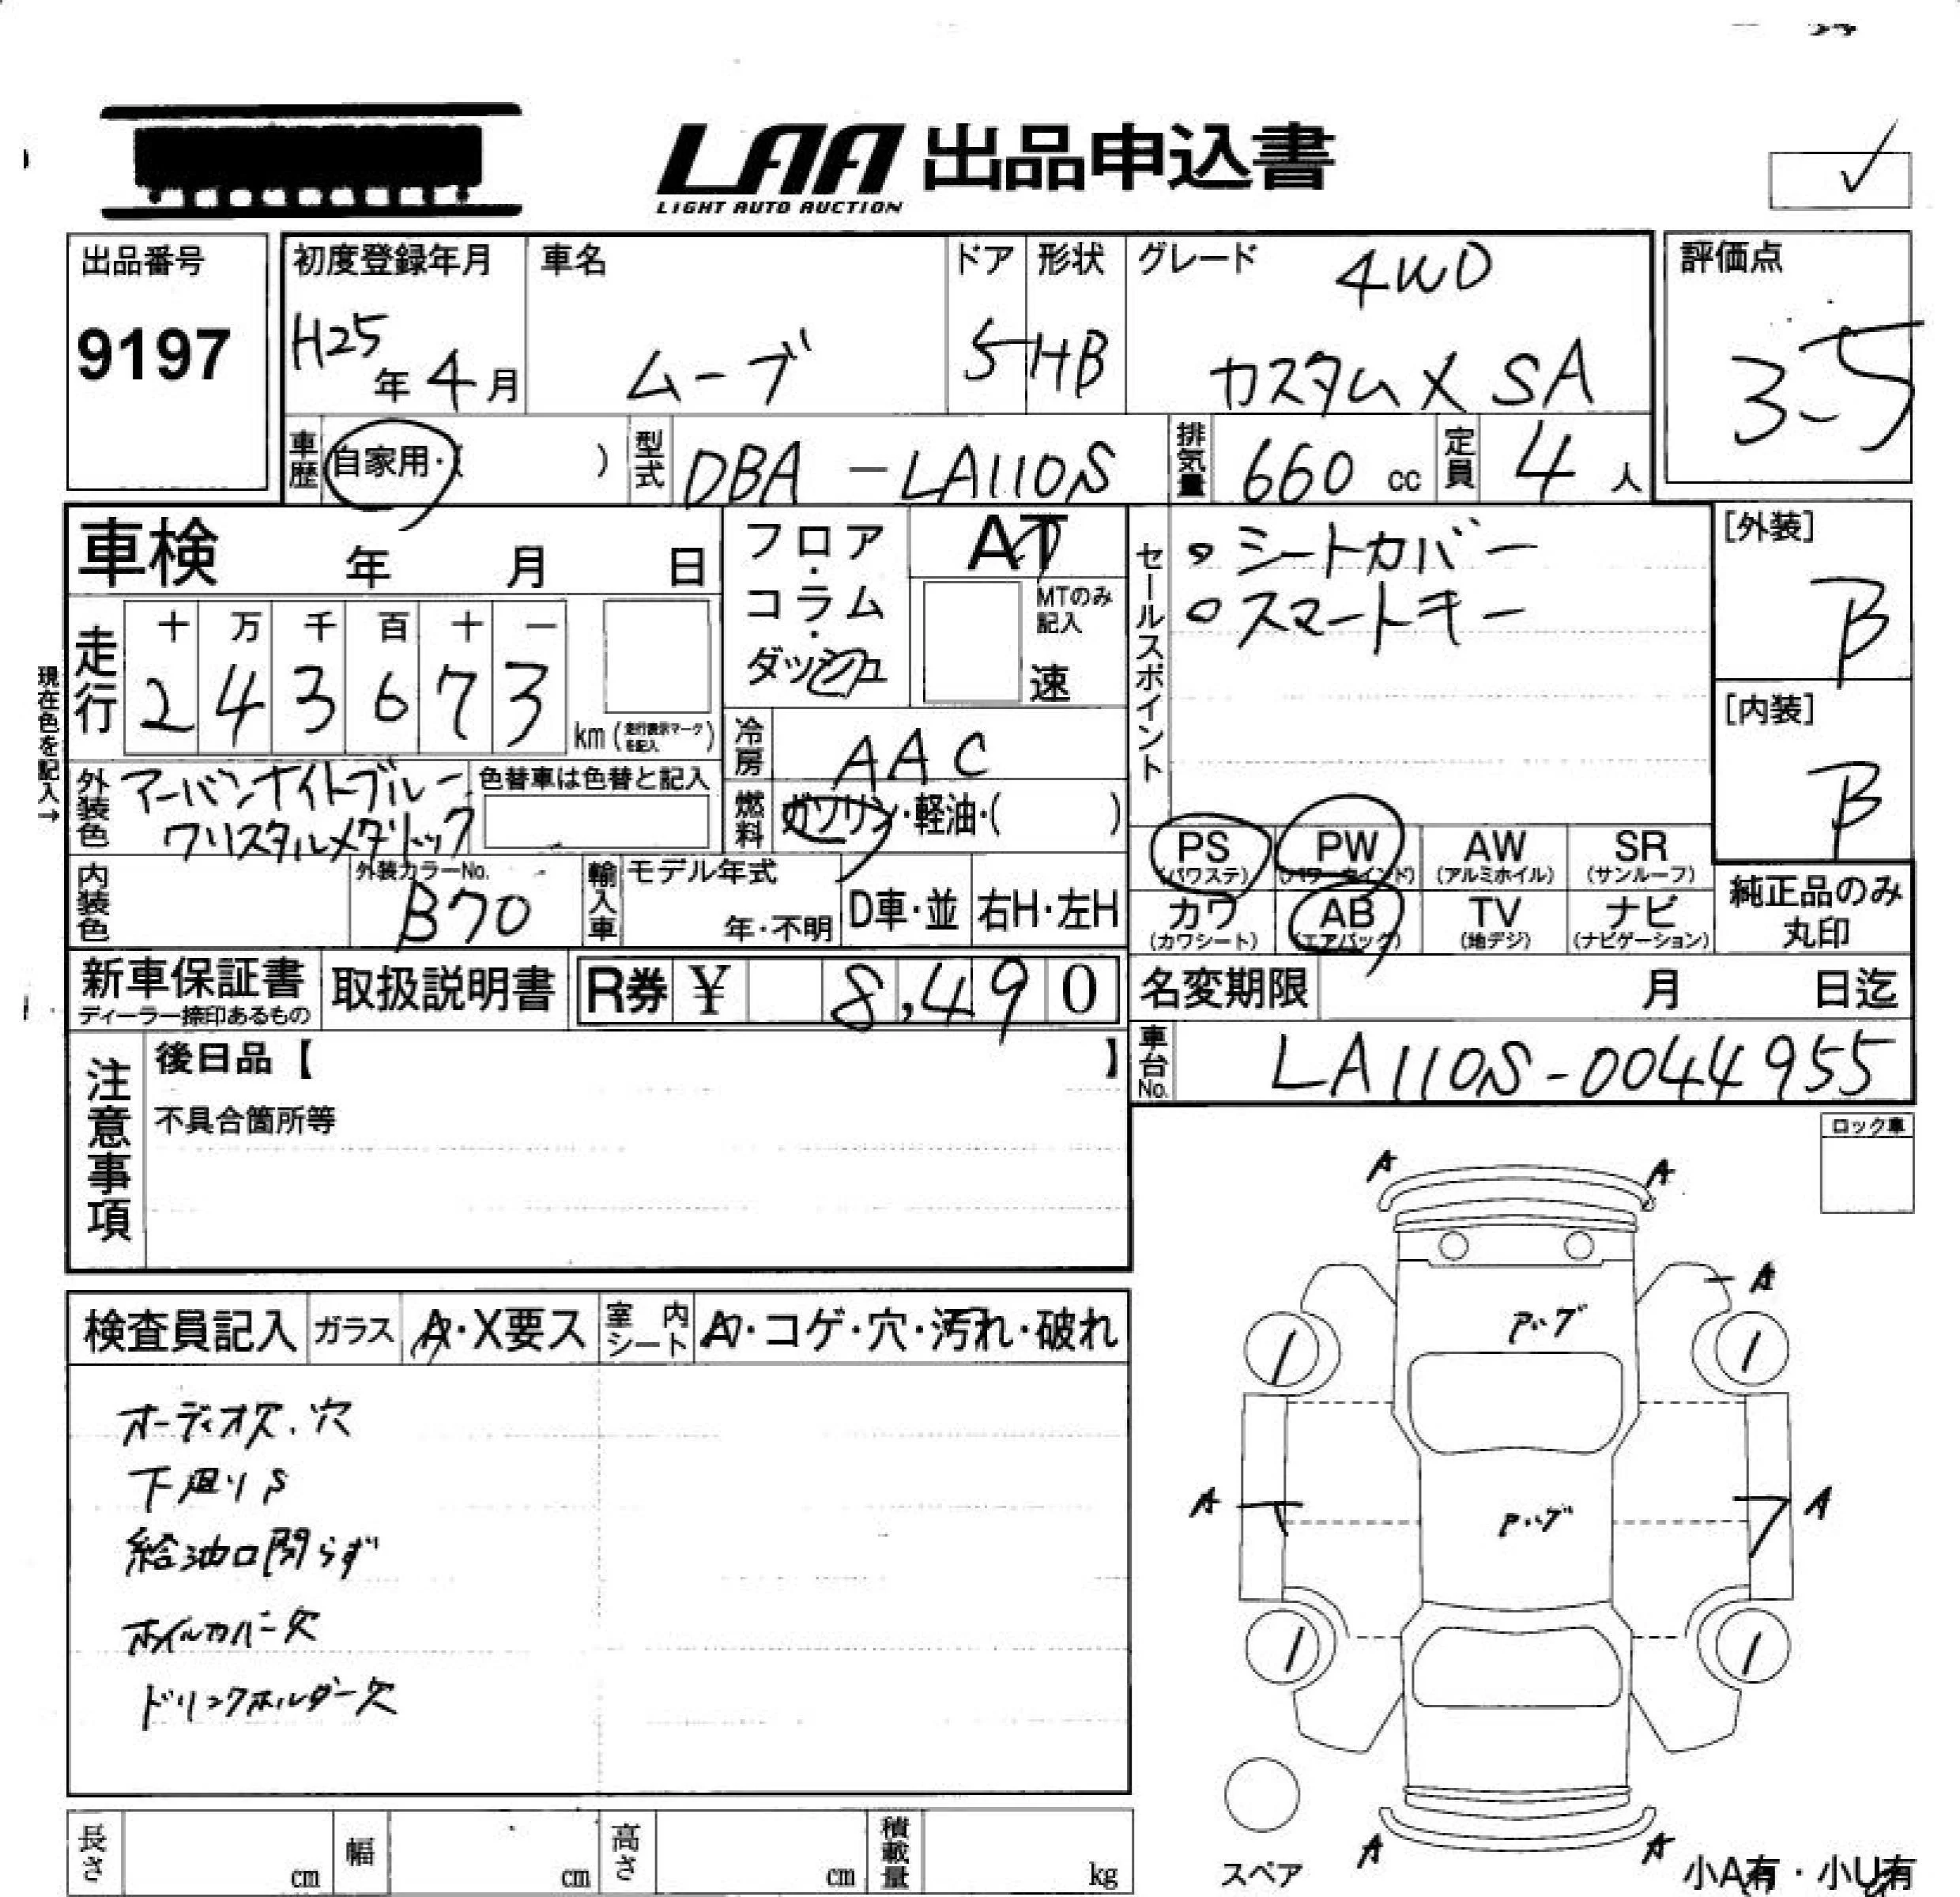 LAA 出品申込書
LIGHT AUTO AUCTION
出品番号
9197
初度登録年月
H25年4月
車名
ムーブ
ドア
5
形状
HB
グレード
4WD
カスタムX SA
評価点
3.5
車歴 自家用・( )
型式 DBA-LA110S
排気量 660 cc
定員 4 人
車検 年 月 日
走行
十 万 千 百 十 一
2 4 3 6 7 3
km (走行表示マークを記入)
現在色を記入→
フロア・コラム・ダッシュ
AT
MTのみ記入
速
冷房 AAC
燃料 ガソリン・軽油・( )
セールスポイント
○シートカバー
○スマートキー
[外装]
B
[内装]
B
外装色 アーバンナイトブルー
クリスタルメタリック
色替車は色替と記入
内装色
外装カラーNo.
B70
輸入車 モデル年式
年・不明
D車・並
右H・左H
PS (パワステ)
PW (パワーウインド)
AW (アルミホイル)
SR (サンルーフ)
カワ (カワシート)
AB (エアバッグ)
TV (地デジ)
ナビ (ナビゲーション)
純正品のみ丸印
新車保証書
ディーラー捺印あるもの
取扱説明書
R券 ¥ 8,490
名変期限 月 日迄
車台No. LA110S-0044955
注意事項
後日品【 】
不具合箇所等
ロック車
検査員記入
ガラス A・X要ス
室内シート
・コゲ・穴・汚れ・破れ
オーディオ欠.穴
下廻りS
給油口開らず
ホイルカバー欠
ドリンクホルダー欠
A A
A
A A
A A
スペア
小A有・小U有
長さ cm
幅 cm
高さ cm
積載量 kg